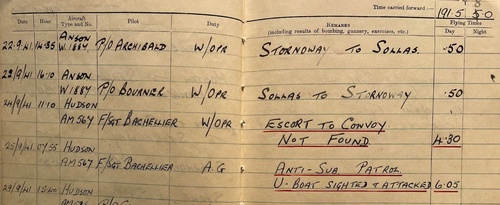 Time carried forward :— 191.5 5.0
Aircraft Type and No. Pilot Duty REMARKS (including results of bombing, gunnery, exercises, etc.) Flying Times Day Night
22.9.41 14.35 ANSON W.1884 P/O ARCHIBALD W/OPR STORNOWAY TO SOLLAS. .50
22/9/41 16.10 ANSON W1884 P/O BOURNER W/OPR SOLLAS TO STORNOWAY .50
24/9/41 11.10 HUDSON AM564 F/SGT BACHELLIER W/OPR ESCORT TO CONVOY
NOT FOUND 4.30
25/9/41 07.55 HUDSON AM567 F/SGT BACHELLIER A.G ANTI-SUB PATROL
U-BOAT SIGHTED & ATTACKED 6.05
29/9/41 HUDSON